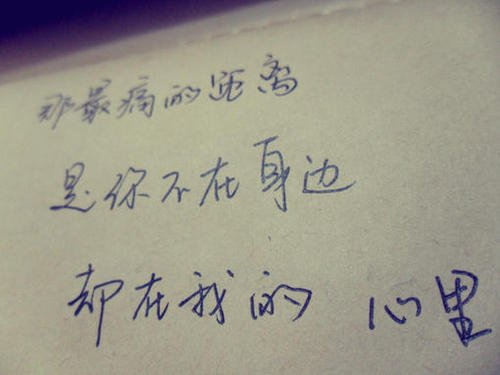 那最痛的距离
是你不在身边
却在我的 心里